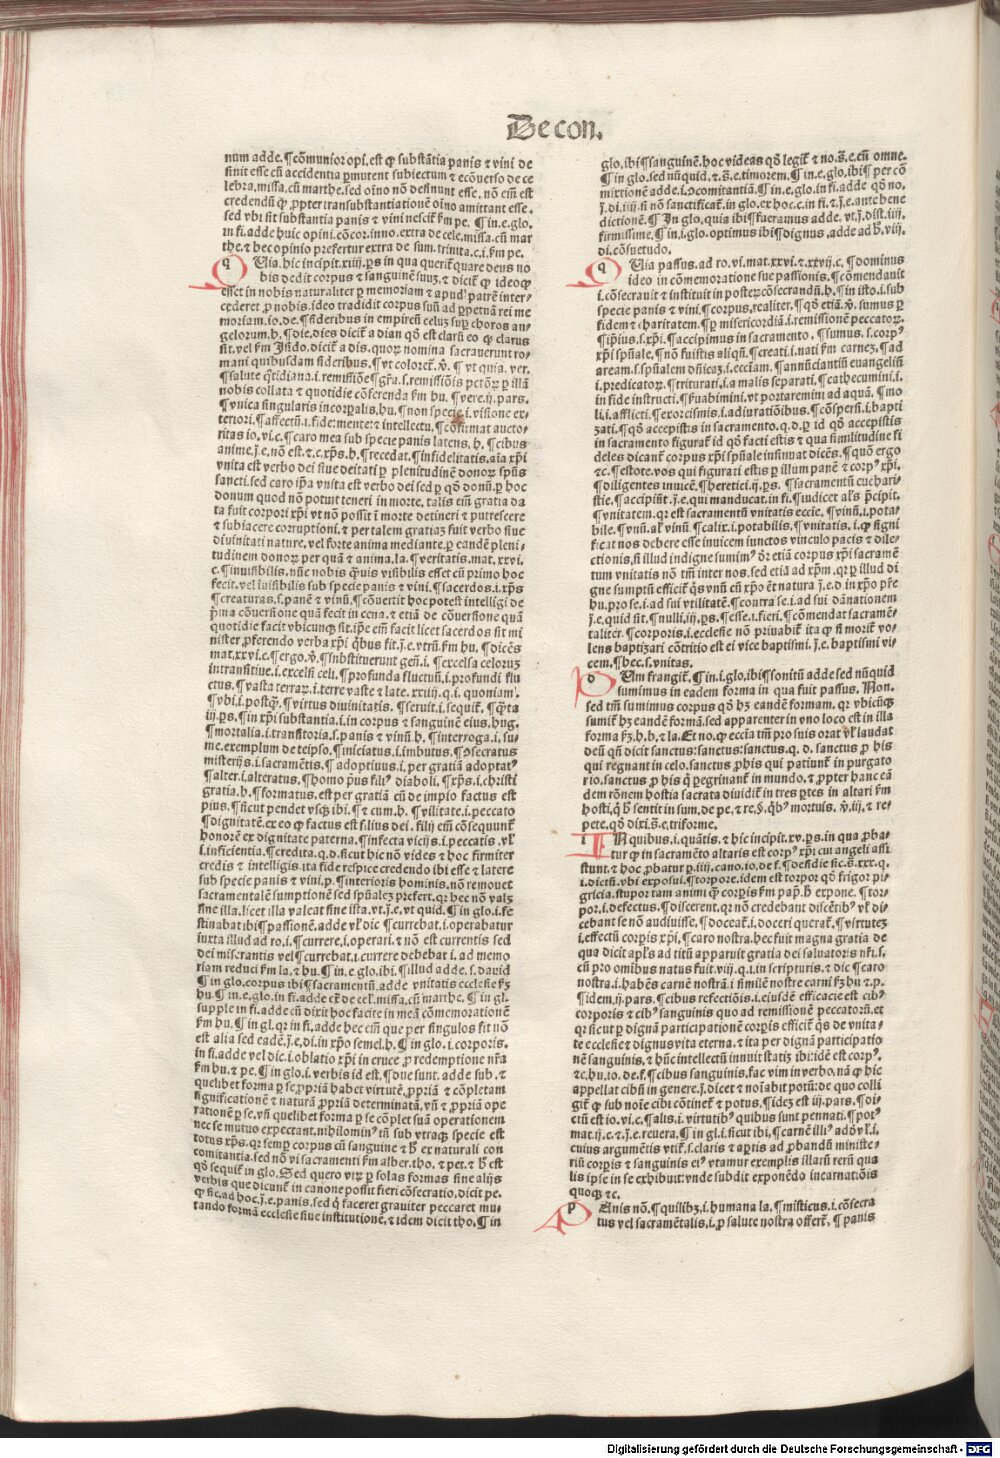 De con.
num adde. ¶ cōmunior opi. est ꝙ substātia panis ⁊ vini de
sinit esse cū accidentia ꝑmutent subiectum ⁊ ecōuerso de ce
lebra. missa. cū marthe. sed oīno nō desinunt esse. nō em̄ est
credendū ꝙ ꝓpter transubstantiationē oīno amittant esse.
sed vbi sit substantia panis ⁊ vini nescit̄ ẜm pe. ¶ in .e. glo.
in fi. adde huic opini. cōcor. inno. extra de cele. missa. cū mar
the. ⁊ hec opinio prefertur extra de sum. trinita. c. i. ẜm pe.
q Uia. hic incipit .xiiij. ꝑs in qua querit̄ quare deus no
bis dedit corpus ⁊ sanguinē suuꝫ. ⁊ dicit̄ ꝙ ideo ꝙ
esset in nobis naturaliter ꝑ memoriam ⁊ apud patrē inter-
cederet ꝓ nobis. ideo tradidit corpus suū ad ꝑpetuā rei me
moriam. io. de. ¶ sideribus in empireū celuꝫ suꝑ choros an-
gelorum. h. ¶ die. dies dicit̄ a dian qd̄ est clarū eo ꝙ clarus
sit. vel ẜm Isido. dicit̄ a dis. quoꝝ nomina sacrauerunt ro-
mani quibusdam sideribus. ¶ vt coloret̄. v̄. ¶ vt quia. ver.
¶ salute q̄tidiana .i. remissiōe ¶ gr̄a .s. remissiōis petōꝝ ꝑ illā
nobis collata ⁊ quotidie cōferenda ẜm hu. ¶ vere .ij. pars.
¶ vnica singularis incorꝑalis. hu. ¶ non specie .i. visione ex-
teriori. ¶ affectū .i. fide: mente: ⁊ intellectu. ¶ cōfirmat aucto-
ritas io. vi. c. ¶ caro mea sub specie panis latens. h. ¶ cibus
anime .j. e. nō est. ⁊ .c. xp̄s. h. ¶ recedat. ¶ infidelitatis. aīa xp̄i
vnita est verbo dei siue deitati ꝑ plenitudinē donoꝝ spūs
sancti. sed caro ip̄a vnita est verbo dei sed ꝑ qd̄ donū. ꝑ hoc
donum quod nō potuit teneri in morte. talis em̄ gratia da
ta fuit corpori xp̄i vt nō possit ī morte detineri ⁊ putrescere
⁊ subiacere corruptioni. ⁊ per talem gratiaꝫ fuit verbo siue
diuinitati nature. vel forte anima mediante. ꝑ eandē pleni-
tudinem donoꝝ per quā ⁊ anima. la. ¶ veritatis. mat. xxvi.
c. ¶ inuisibilis. nūc nobis q̄uis visibilis esset cū primo hoc
fecit. vel īuisibilis sub specie panis ⁊ vini. ¶ sacerdos .i. xp̄s
¶ creaturas .s. panē ⁊ vinū. ¶ cōuertit hoc potest intelligi de
p̄ma cōuersione quā fecit in cena. ⁊ etiā de cōuersione quā
quotidie facit vbicunqꝫ sit. ip̄e em̄ facit licet sacerdos sit mi
nister. ꝓferendo verba xp̄i q̄bus fit .j. e. vtrū. ẜm hu. ¶ dicēs
mat. xxvi. c. ¶ ergo. v̄. ¶ substituerunt geñ. i. ¶ excelsa celoruꝫ
intransitiue .i. excelsi celi. ¶ profunda fluctuū .i. profundi flu
ctus. ¶ vasta terraꝝ .i. terre vaste ⁊ late. xxiij. q. i. quoniam.
¶ vbi .i. postq̄. ¶ virtus diuinitatis. ¶ seruit .i. sequit̄. ¶ q̄ta
iij. ꝑs. ¶ in xp̄i substantia .i. in corpus ⁊ sanguinē eius. hug.
¶ mortalia .i. transitoria .s. panis ⁊ vinū h. ¶ interroga .i. su-
me. exemplum de teipso. ¶ iniciatus .i. imbutus. ¶ ꝯsecratus
misterijs .i. sacramētis. ¶ adoptiuus .i. per gratiā adoptatꝰ
¶ alter .i. alteratus. ¶ homo p̄us filiꝰ diaboli. ¶ xp̄s. i. christi
gratia. h. ¶ formatus. est per gratiā cū de impio factus est
pius. ¶ sicut pendet vsqꝫ ibi. ¶ ⁊ cum. h. ¶ vilitate .i. peccato
¶ dignitatē. ex eo ꝙ factus est filius dei. filij em̄ cōsequunt̄
honorē ex dignitate paterna. ¶ infecta vicijs .i. peccatis. vl̄
.i. inficientia. ¶ credita. q. d. sicut hic nō vides ⁊ hoc firmiter
credis ⁊ intelligis. ita fide respice credendo ibi esse ⁊ latere
sub specie panis ⁊ vini. p. ¶ interioris hominis. nō remouet
sacramentalē sumptionē sed spūaleꝫ prefert. qꝛ hec nō valꝫ
sine illa. licet illa valeat sine ista. vt .j. e. vt quid. ¶ in glo. i. fe
stinabat ibi ¶ passionē. adde vl̄ dic ¶ currebat .i. operabatur
iuxta illud ad ro. i. ¶ currere .i. operari. ⁊ nō est currentis sed
dei miserantis vel ¶ currebat .i. currere debebat .i. ad memo
riam reduci ẜm la. ⁊ hu. ¶ in .e. glo. ibi. ¶ illud adde .s. dauid
¶ in glo. corpus ibi ¶ sacramentū. adde vnitatis ecclesie ẜꝫ
hu. ¶ in .e. glo. in fi. adde ex̄ de cel̄. missa. cū marthe. ¶ in gl.
supple in fi. adde cū dixit hoc facite in meā cōmemorationē
ẜm hu. ¶ in gl. qꝛ in fi. adde hec em̄ que per singulos fit nō
est alia sed eadē .j. e. di. in xp̄o semel. h. ¶ in glo. i. corporis.
in fi. adde vel dic .i. oblatio xp̄i in cruce ꝓ redemptione nr̄a
ẜm hu. ⁊ pe. ¶ in glo. i. verbis id est. ¶ due sunt. adde sub. ⁊
quelibet forma ꝑ se. ꝓpriā habet virtutē. ꝓpriā ⁊ cōpletam
significationē ⁊ naturā ꝓpriā determinatā. vñ ⁊ ꝓpriā ope
rationē ꝑ se. vñ quelibet forma ꝑ se cōplet suā operationem
nec se mutuo expectant. nihilominꝰ tñ sub vtraqꝫ specie est
totus xp̄s. qꝛ semꝑ corpus cū sanguine ⁊ h̄ ex naturali con
comitantia. sed nō vi sacramenti ẜm alber. tho. ⁊ pet. ⁊ h̄ est
qd̄ sequit̄ in glo. Sed quero vtꝝ ꝑ solas formas sine alijs
verbis que dicunt̄ in canone possit fieri cōsecratio. dicit pe.
ꝙ sic. ad hoc .j. e. panis. sed q̄ faceret grauiter peccaret mu-
tando formā ecclesie siue institutionē. ⁊ idem dicit tho. ¶ in
glo. ibi ¶ sanguinē. hoc videas qd̄ legit̄ ⁊ no. s̄. e. cū omne.
¶ in glo. sed nūquid. ⁊ .s̄. e. timorem. ¶ in .e. glo. ibi ¶ per cō
mixtionē adde .i. ꝯcomitantiā. ¶ in .e. glo. in fi. adde qd̄ no.
.j. di. iiij. si nō sanctificat̄. in glo. ex hoc. c. in fi. ⁊ .j. e. ante bene
dictionē. ¶ In glo. quia ibi ¶ fueramus adde. vt .j. dist. iiij.
firmissime. ¶ in .i. glo. optimus ibi ¶ dignus. adde ad h̄. viij.
di. cōsuetudo.
q Uia passus. ad ro. vi. mat. xxvi. ⁊ xxvij. c. ¶ dominus
ideo in cōmemoratione sue passionis. ¶ cōmendauit
.i. cōsecrauit ⁊ instituit in posteꝝ cōsecrandū. h. ¶ in isto .i. sub
specie panis ⁊ vini. ¶ corpus. realiter. ¶ qd̄ etiā. v̄. sumus ꝑ
fidem ⁊ charitatem. ¶ ꝑ misericordiā .i. remissionē peccatoꝝ.
¶ ip̄ius .s. xp̄i. ¶ accipimus in sacramento. ¶ sumus .s. corpꝰ
xp̄i spūale. ¶ nō fuistis aliqñ. ¶ creati .i. nati ẜm carneꝫ. ¶ ad
aream .s. spūalem dn̄icaꝫ .i. ecc̄iam. ¶ annūciantiū euangeliū
.i. predicatoꝝ. ¶ triturati .i. a malis separati. ¶ cathecumini .i.
in fide instructi. ¶ seruabimini. vt portaremini ad aquā. ¶ mo
liti .i. afflicti. ¶ exorcismis .i. adiuratiōibus. ¶ cōspersi .i. bapti
ȝati. ¶ qd̄ accepistis in sacramento. q. d. ꝑ id qd̄ accepistis
in sacramento figurat̄ id qd̄ facti estis ⁊ qua similitudine fi
deles dicant̄ corpus xp̄i spūale insinuat dicēs. ¶ quō ergo
⁊c. ¶ estote. vos qui figurati estis ꝑ illum panē ⁊ corpꝰ xp̄i.
¶ diligentes inuicē. ¶ heretici .ij. ꝑs. ¶ sacramentū euchari-
stie. ¶ accipiūt .j. e. qui manducat. in fi. ¶ iudicet al̄s p̄cipit.
¶ vnitatem. qꝛ est sacramentū vnitatis eccīe. ¶ vinū .i. pota-
bile. ¶ vnū. al̄ vinū. ¶ calix .i. potabilis. ¶ vnitatis .i. ꝙ signi
ficat nos debere esse inuicem iunctos vinculo pacis ⁊ dile-
ctionis. si illud indigne sumimꝰ. ōr̄ etiā corpus xp̄i sacramē
tum vnitatis nō tm̄ inter nos. sed etiā ad xp̄m. qꝛ ꝑ illud di
gne sumptū efficit̄ q̄s vnū cū xp̄o et natura .j. e. d in xp̄o pr̄e
hu. pro se .i. ad sui vtilitatē. ¶ contra se .i. ad sui dānationem
.j. e. quid sit. ¶ nulli. iij. ꝑs. ¶ esse .i. fieri. ¶ cōmendat sacramē-
taliter. ¶ corporis .i. ecclesie nō priuabit̄ ita ꝙ si morit̄ vo-
lens baptizari cōtritio est ei vice baptismi. j. e. baptismi vi-
cem. ¶ hec .s. vnitas.
d Um frangit̄. ¶ in .i. glo. ibi ¶ sonitū adde sed nūquid
sumimus in eadem forma in qua fuit passus. Non.
sed tm̄ sumimus corpus qd̄ hꝫ eandē formam. qꝛ vbicūqꝫ
sumit̄ hꝫ eandē formā. sed apparenter in vno loco est in illa
forma ẜꝫ. h. b. ⁊ la. Et no. ꝙ ecc̄ia tm̄ pro suis orat vl̄ laudat
deū qñ dicit sanctus: sanctus: sanctus. q. d. sanctus ꝓ his
qui regnant in celo. sanctus ꝓ his qui patiunt̄ in purgato
rio. sanctus ꝓ his q̄ ꝑegrinant̄ in mundo. ⁊ ꝓpter hanc eā
dem rōnem hostia sacrata diuidit̄ in tres ꝑtes in altari ẜm
hosti. q̄ h̄ sentit in sum. de pe. ⁊ re. §. qb̄ꝰ mortuis. v̄. iij. ⁊ re-
pete. qd̄ dixi .s̄. e. triforme.
i N quibus .i. quātis. ⁊ hic incipit .xv. ꝑs. in qua ꝓba-
tur ꝙ in sacramēto altaris est corpꝰ xp̄i cui angeli assi
stunt. ⁊ hoc ꝓbatur ꝑ .iiij. cano. io. de f. ¶ desidie sic. s̄. xxx. q.
.i. dictū. vbi exposui. ¶ torpore. idem est torpor qd̄ frigor pi-
gricia. stupor tam animi q̄ corꝑis ẜm pap̄. h̄ expone. ¶ tor-
por .i. defectus. ¶ discerent. qꝛ nō credebant discētibꝰ vl̄ di-
cebant se nō audiuisse. ¶ doceat̄ .i. doceri querat̄. ¶ virtuteꝫ
.i. effectū corꝑis xp̄i. ¶ caro nostra. hec fuit magna gratia de
qua dicit apl̄s ad titū apparuit gratia dei saluatoris nr̄i .s.
cū pro omibus natus fuit. viij. q. i. in scripturis. ⁊ dic ¶ caro
nostra .i. habēs carnē nostrā .i. similē nostre carni ẜꝫ hu ⁊ p.
¶ idem. ij. pars. ¶ cibus refectiōis .i. eiusdē efficacie est cibꝰ
corporis ⁊ cibꝰ sanguinis quo ad remissionē peccatorū. et
qꝛ sicut ꝑ dignā participationē corꝑis efficit̄ q̄s de vnita-
te ecclesie ⁊ dignus vita eterna. ⁊ ita per dignā participatio
nē sanguinis. ⁊ hūc intellectū innuit statiꝫ ibi: idē est corpꝰ.
⁊c. hu. io. de. f. ¶ cibus sanguinis. fac vim in verbo. nā ꝙ hic
appellat cibū in genere .j. dicet ⁊ noīabit potū: de quo colli
git̄ ꝙ sub noīe cibi cōtinet̄ ⁊ potus. ¶ ideꝫ est iij. pars. ¶ di-
ctū est io. vi. c. ¶ alis .i. virtutibꝰ quibus sunt pennati. ¶ potꝰ
mat. ij. c. ⁊ .j. e. reuera. ¶ in gl. i. sicut ibi. ¶ carnē illiꝰ add. vl̄ .i.
cuius argumētis vtit̄ .s. claris ⁊ aꝑtis ad ꝓbandū ministe-
riū corꝑis ⁊ sanguinis eiꝰ. vtamur exemplis illarū rerū qua
lis ipse in se exhibuit: vnde subdit exponēdo incarnatiōis
quoqꝫ ⁊c.
p Anis nō. ¶ quilibꝫ .i. humana la. ¶ misticus .i. cōsecra
tus vel sacramētalis .i. ꝓ salute nostra offert̄. ¶ panis
Digitalisierung gefördert durch die Deutsche Forschungsgemeinschaft - DFG